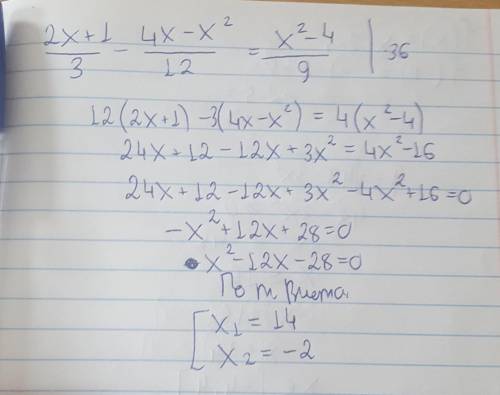 (2x+1)/3 - (4x-x²)/12 = (x²-4)/9 | ·36
12(2x+1) -3(4x-x²) = 4(x²-4)
24x+12-12x+3x²=4x²-16
24x+12-12x+3x²-4x²+16=0
-x²+12x+28=0
x²-12x-28=0
По т. Виета
[x₁=14
x₂=-2